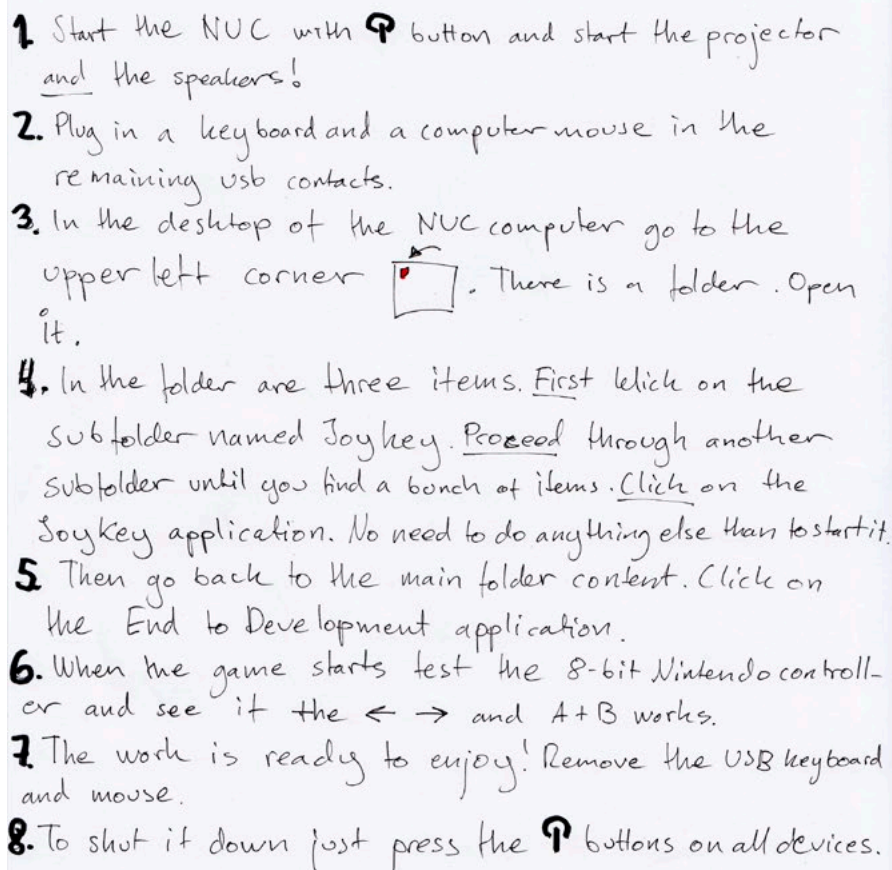 1 Start the NUC with button and start the projector
and the speakers!
2. Plug in a keyboard and a computer mouse in the
remaining usb contacts.
3. In the desktop of the NUC computer go to the
upper left corner . There is a folder. Open
it.
4. In the folder are three items. First klick on the
subfolder named Joykey. Proceed through another
subfolder until you find a bunch of items. Click on the
JoyKey application. No need to do anything else than to start it.
5 Then go back to the main folder content. Click on
the End to Development application.
6. When the game starts test the 8-bit Nintendo controll-
er and see if the ← → and A+B works.
7. The work is ready to enjoy! Remove the USB keyboard
and mouse.
8. To shut it down just press the buttons on all devices.